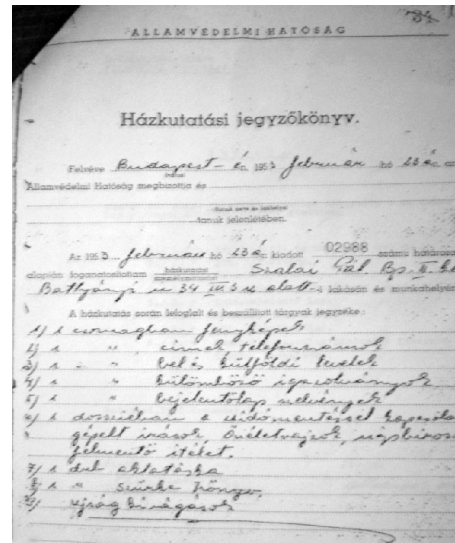 ÁLLAMVÉDELMI HATÓSÁG
Házkutatási jegyzőkönyv.
Felvéve Budapest-én, 1953 február hó 23 án az
Államvédelmi Hatóság megbizottja és
tanuk neve és lakhelye
tanuk jelenlétében.
Az 1953. február hó 23 án kiadott 02988 számu határozat
alapján foganatositottam házkutatás Szalai Pál Bp. II. ker
Batthyányi u 34 III 3 sz alatti lakásán és munkahelyén
A házkutatás során lefoglalt és beszállitott tárgyak jegyzéke:
1/ 1 csomagban fényképek
2/ 1 " címek telefonszámok
3/ 1 " bel és külföldi levelek
4/ 1 " különböző igazolványok
5/ 1 " bejelentőlap szelvények
6/ 1 dossziéban a zsidómentéssel kapcsola
gépelt irások önéletrajzok népbiros
felmentő itélet.
7/ 1 drb aktatáska
8/ 1 " szürke könyv.
9/ ujság kivágások